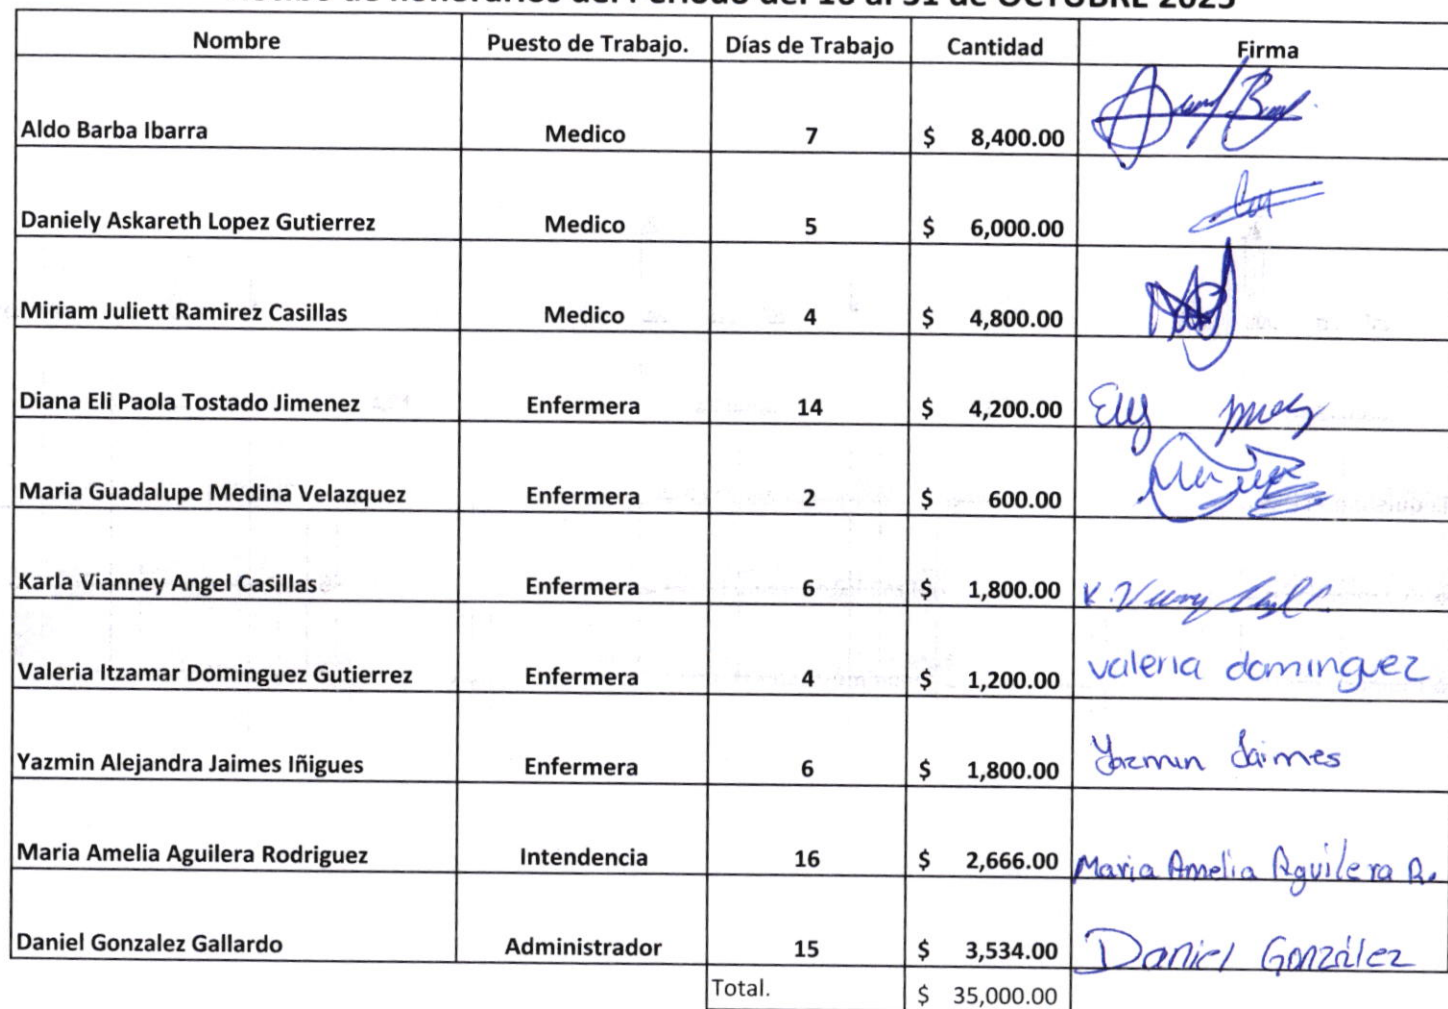 de honorarios del Periodo del 16 al 31 de OCTUBRE 2025
Nombre Puesto de Trabajo. Días de Trabajo Cantidad Firma
Aldo Barba Ibarra Medico 7 $ 8,400.00
Daniely Askareth Lopez Gutierrez Medico 5 $ 6,000.00
Miriam Juliett Ramirez Casillas Medico 4 $ 4,800.00
Diana Eli Paola Tostado Jimenez Enfermera 14 $ 4,200.00 Ely
Maria Guadalupe Medina Velazquez Enfermera 2 $ 600.00
Karla Vianney Angel Casillas Enfermera 6 $ 1,800.00
Valeria Itzamar Dominguez Gutierrez Enfermera 4 $ 1,200.00 valeria dominguez
Yazmin Alejandra Jaimes Iñigues Enfermera 6 $ 1,800.00 Yazmin Jaimes
Maria Amelia Aguilera Rodriguez Intendencia 16 $ 2,666.00 Maria Amelia Aguilera R.
Daniel Gonzalez Gallardo Administrador 15 $ 3,534.00 Daniel González
Total. $ 35,000.00